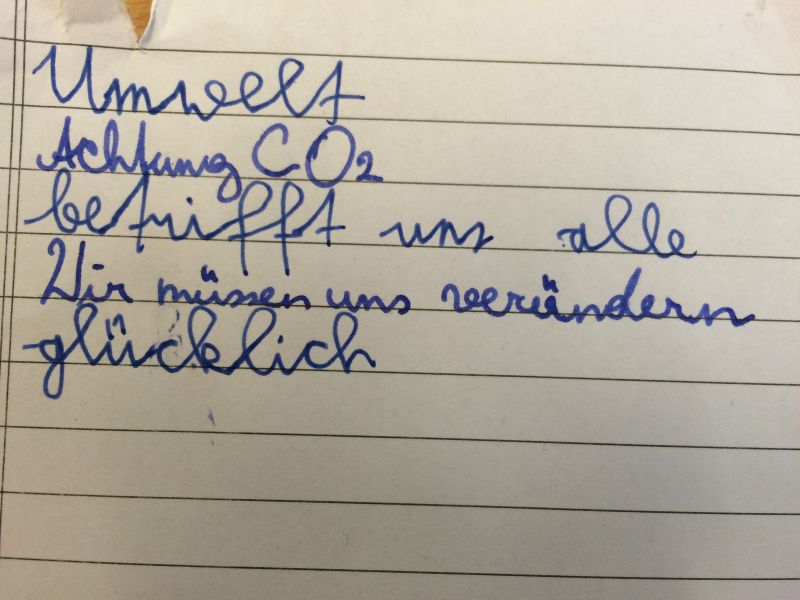 Umwelt
Achtung CO2
betrifft uns alle
Wir müssen uns verändern
glücklich